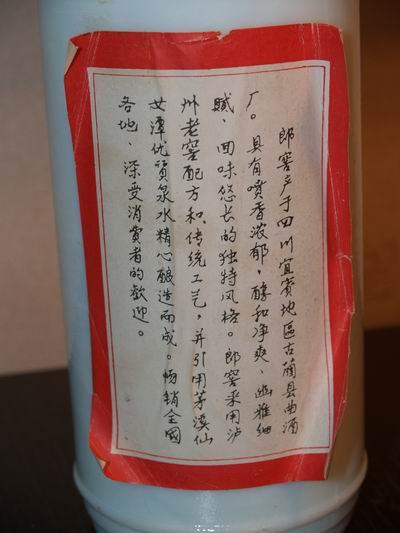 郎窖产于四川宜賓地區古藺县曲酒
厂。具有喷香浓郁，醇和净爽、幽雅细
腻、回味悠长的独特风格。郎窖采用泸
州老窖配方和传统工艺，并引用茅溪仙
女潭优質泉水精心酿造而成。畅销全國
各地、深受消費者的歓迎。